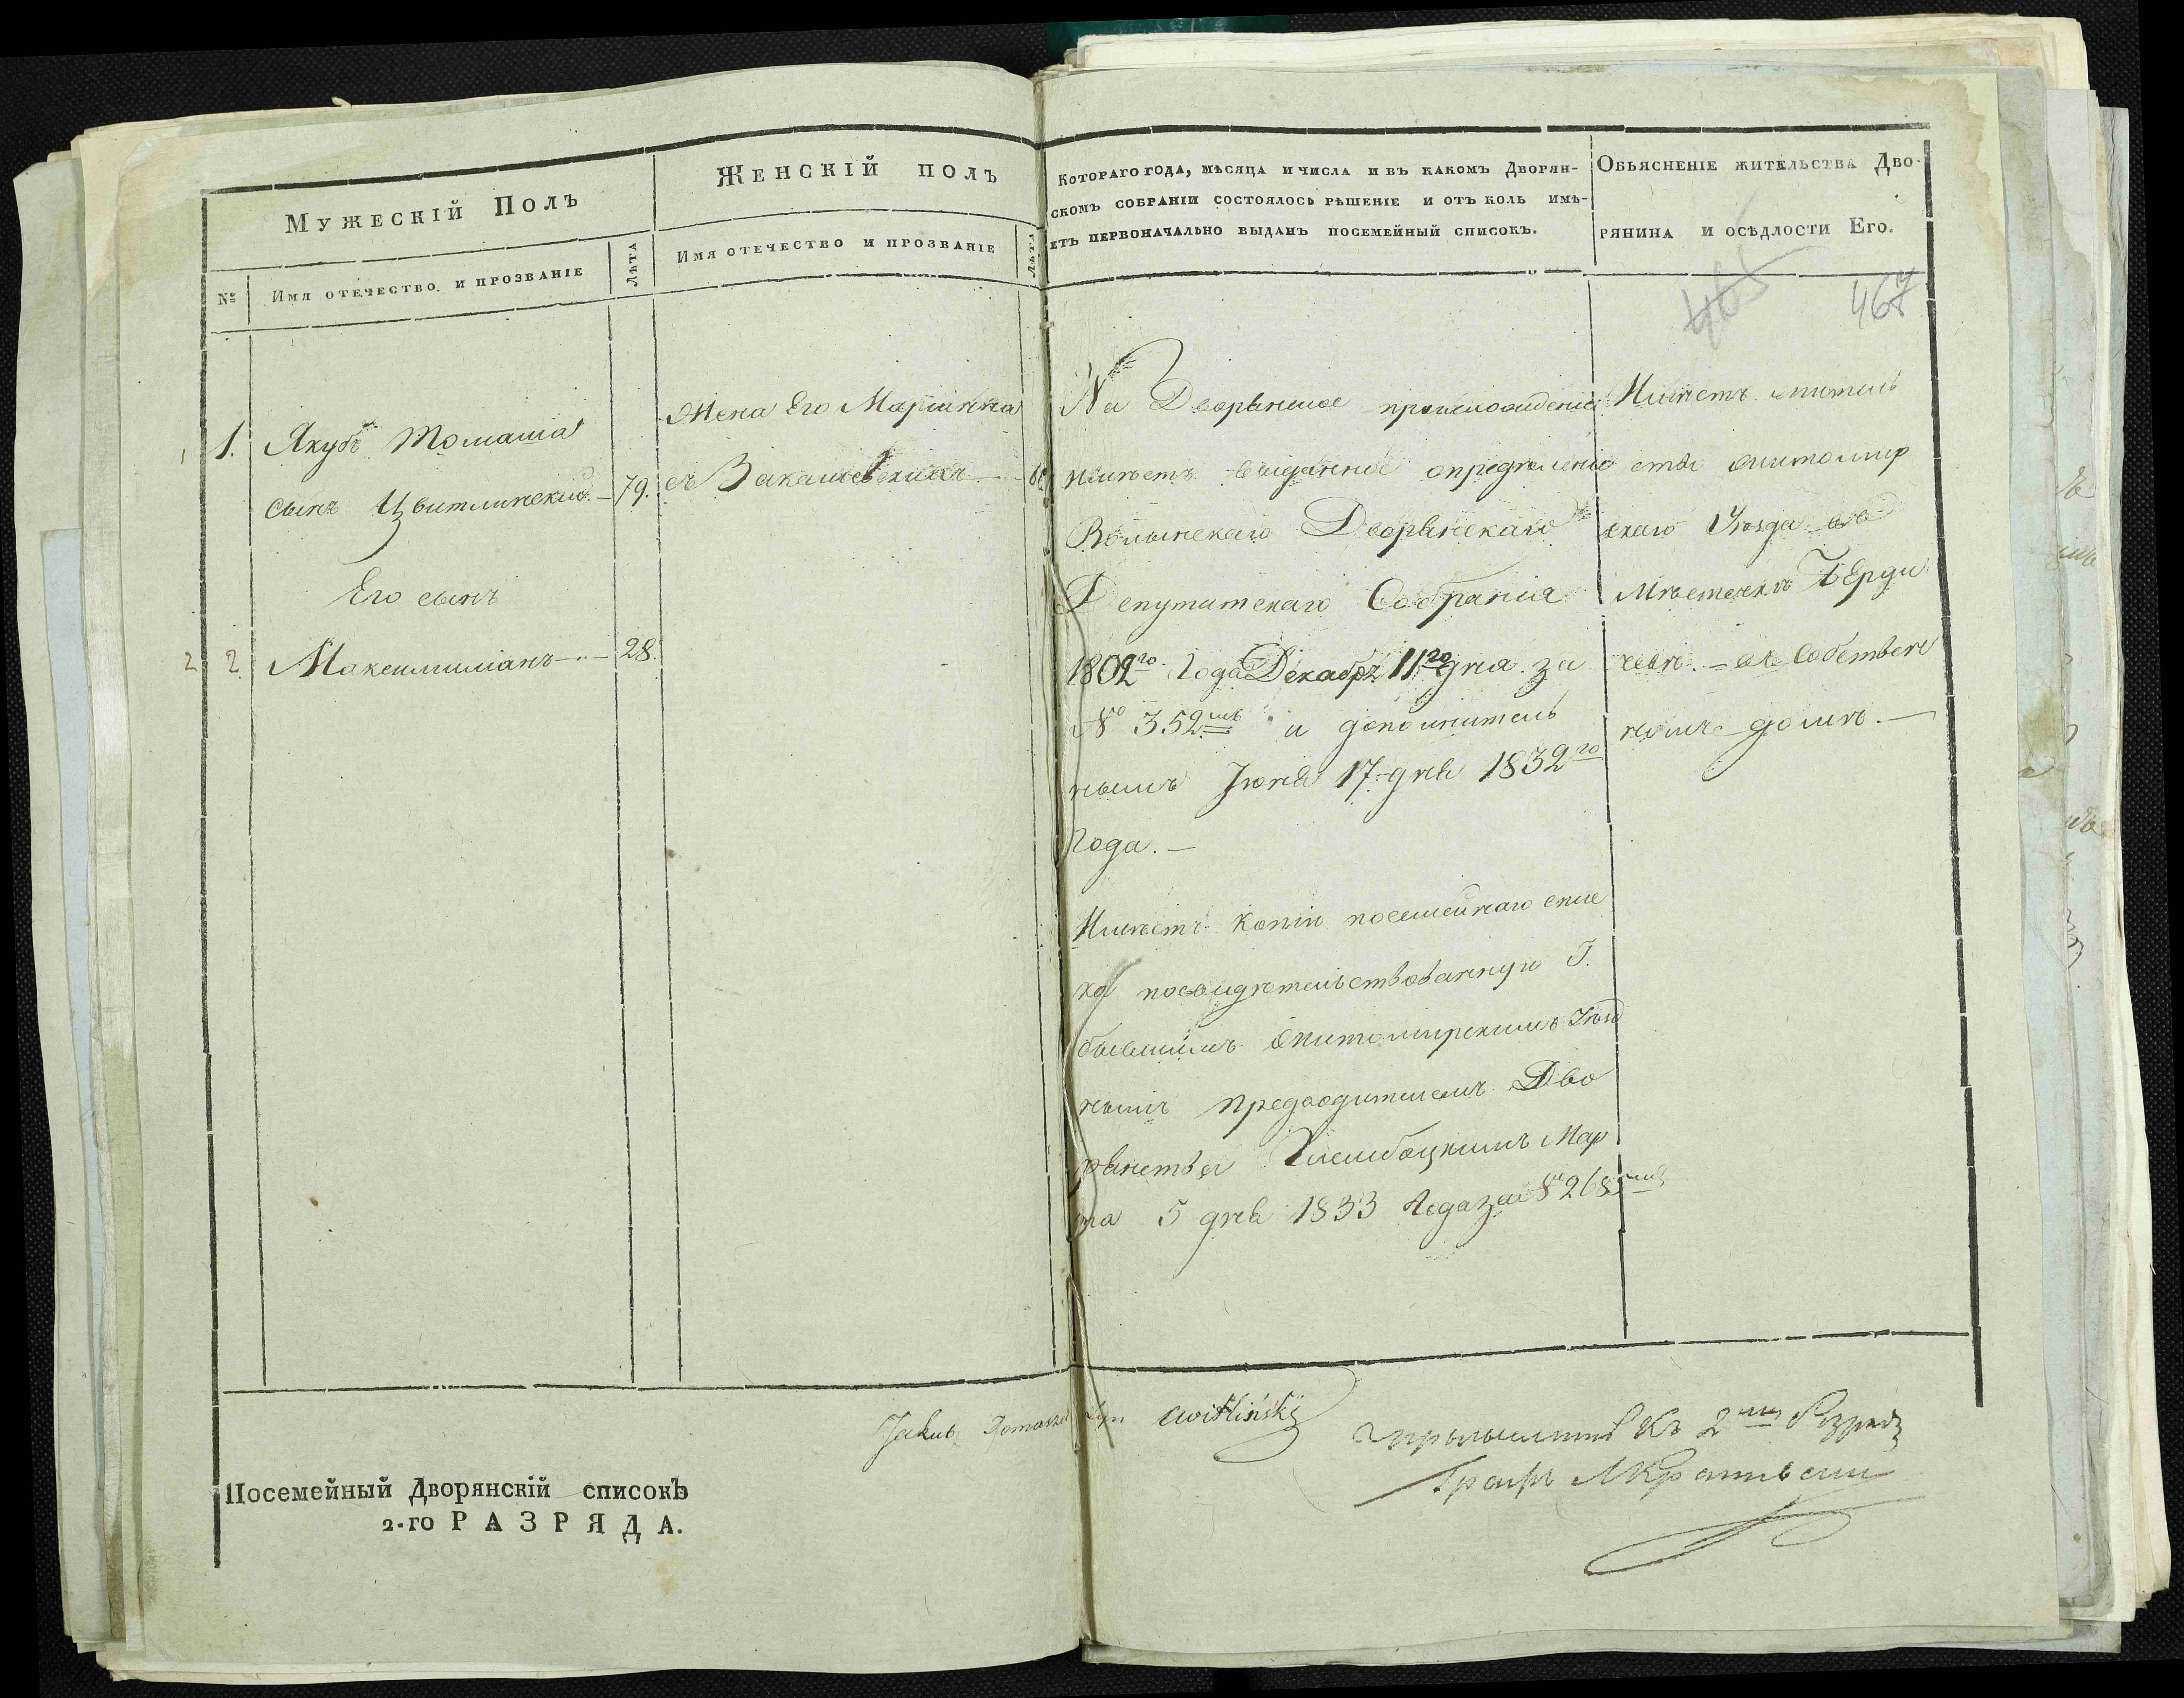 Мужескій Полъ
№
Имя отечество и прозваніе
Лѣта
Женскій полъ
Имя отечество и прозваніе
Лѣта
Котораго года, мѣсяца и числа и въ какомъ Дворян-
скомъ собраніи состоялось рѣшеніе и отъ коль имѣ-
етъ первоначально выданъ посемейный списокъ.
Обьясненіе жительства Дво-
рянина и осѣдлости Его.
465
467
1 1. Якубъ Томаша
сынъ Цвитлинскій — 79.
Его сынъ
2 2 Максимиліанъ — 28.
Жена Его Маріянна
съ
На Дворянское происхожденіе
имѣетъ выданное опредѣленіе
Волынскаго Дворянскаго
Депутатскаго Собранія
1802го Года Декабр 11го дня за
№ 352мъ и дополнитель
нымъ Іюня 17 дня 1832го
Года. —
Имѣетъ копію посемейнаго спис
ка посвидѣтельствованную
бывшимъ Житомирскимъ Уѣзд
нымъ предводителемъ Дво
рянства Мар
та 5 дня 1833 Года за № 268
Имѣетъ житель
ство Житомир
скаго Уѣзда въ
Мѣстечкѣ Берди
чевѣ — въ Собствен
номъ домѣ. —
Jakub Tomasza syn Cwitliński
къ 2му Разряду
Графъ
Посемейный Дворянскій списокъ
2-го РАЗРЯДА.